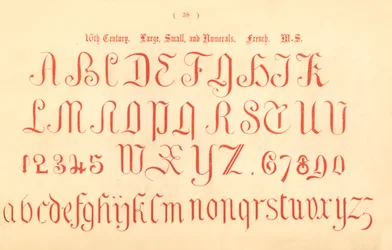 ( 38 )
16th Century. Large, Small, and Numerals. French. M.S.
A B C D E F G H I K
L M N O P Q R S T U V
1 2 3 4 5 W X Y Z . 6 7 8 9 0
a b c d e f g h i j k l m n o p q r s t u v x y z z